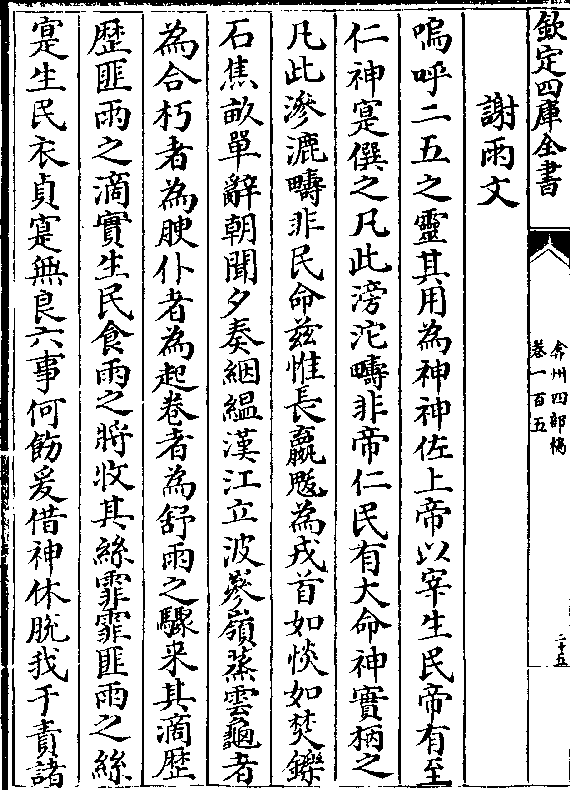 欽定四庫全書
弇州四部稿
卷一百五
二十五
謝雨文
嗚呼二五之靈其用為神神佐上帝以宰生民帝有至
仁神寔僎之凡此滂沱疇非帝仁民有大命神實柄之
凡此滲漉疇非民命兹惟長嬴魃為戎首如惔如焚鑠
石焦畝單辭朝聞夕奏絪緼漢江立波參嶺蒸雲龜者
為合朽者為腴仆者為起卷者為舒雨之驟来其滴歴
歴匪雨之滴實生民食雨之將收其絲霏霏匪雨之絲
寔生民衣貞寔無良六事何飭爰借神休脱我于責諸